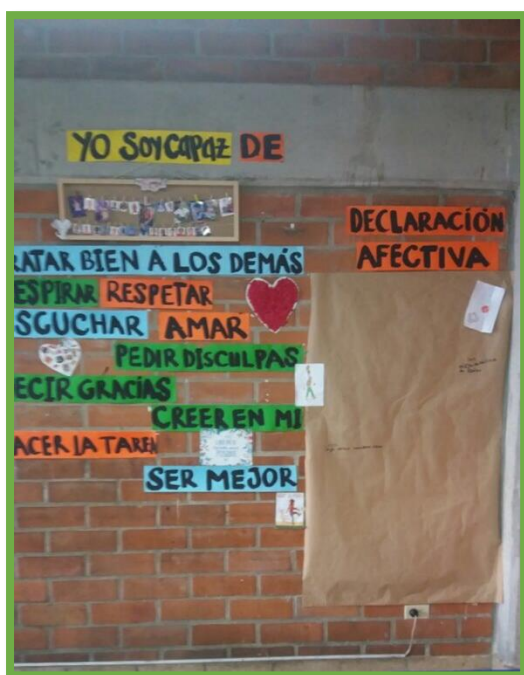 YO SOY CAPAZ DE
DECLARACIÓN
AFECTIVA
RATAR BIEN A LOS DEMÁS
ESPIRAR RESPETAR
SCUCHAR AMAR
PEDIR DISCULPAS
ECIR GRACIAS
CREER EN MI
ACER LA TAREA
SER MEJOR